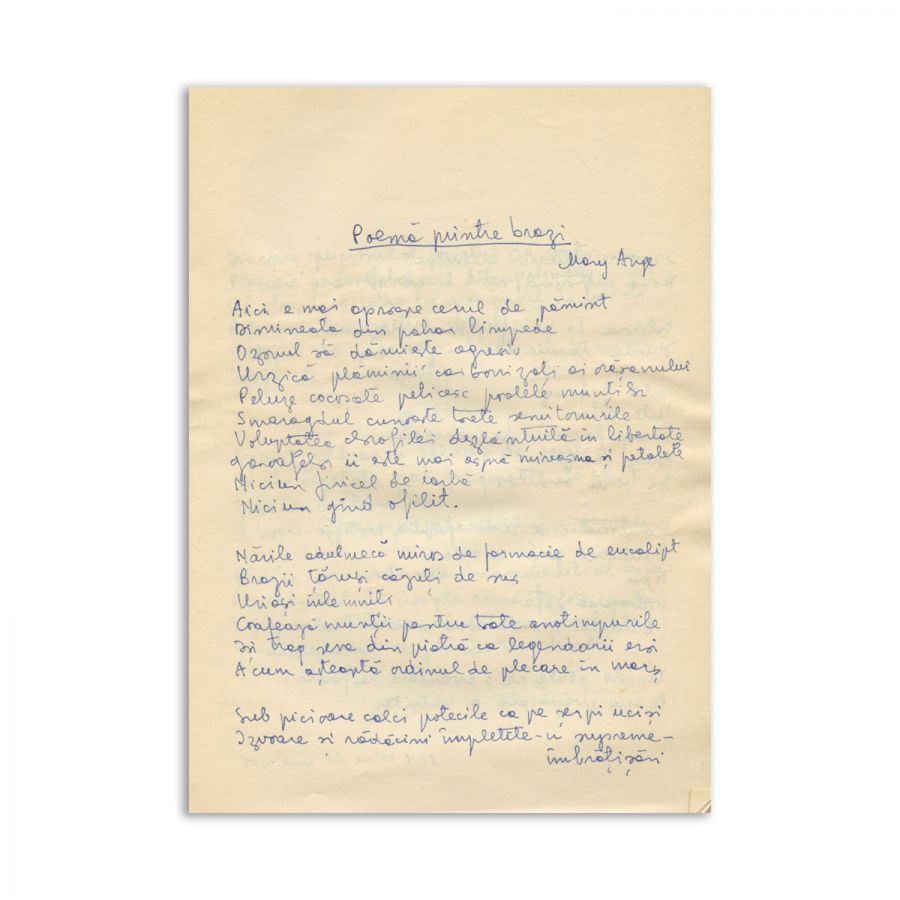 Poemă printre brazi
Mary Ange
Aici e mai aproape cerul de pămînt
Dimineața din pahar limpede
Ozonul să dăruiește agresiv
Urzică plămînii carbonizați ai orășanului
Peluze cocoșate peticesc poalele munților
Smaragdul cunoaște toate semitonurile
Voluptatea clorofilei dezlănțuită în libertate
garoafelor ii este mai aspră mireasma și petalele
Niciun firicel de iarbă
Niciun gînd ofilit.
Nările adulmecă miros de farmacie de eucalipt
Brazii țăruși căzuți de sus
Uriași înlemniți
Coafează munții pentru toate anotimpurile
Isi trag seva din piatră ca legendarii eroi
Acum așteaptă ordinul de plecare în marș
Sub picioare calci potecile ca pe șerpi uciși
Izvoare si rădăcini împletite-n supreme-
îmbrățișări